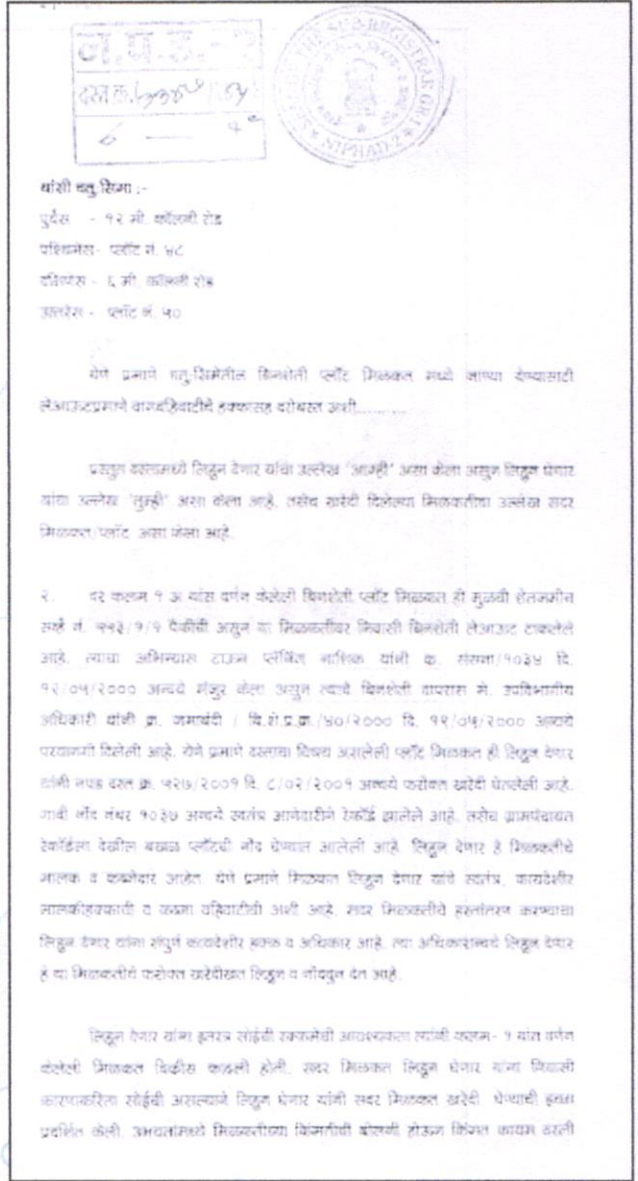 न.प.ड.-२
दस्त क.
SEAL OF THE SUB-REGISTRAR GR1
NIPHAD-2
यांसी चतु:सिमा :-
पुर्वेस - १२ मी. कॉलनी रोड
पश्चिमेस- प्लॉट नं. ४८
दक्षिणेस - ६ मी. कॉलनी रोड
उत्तरेस - प्लॉट नं. ५०
येणे प्रमाणे चतु:सिमेतील बिनशेती प्लॉट मिळकत मध्ये जाण्या येण्यासाठी
लेआऊटप्रमाणे वागवहिवाटीचे हक्कासह दरोबस्त अशी...........
प्रस्तुत दस्तामध्ये लिहून देणार यांचा उल्लेख 'आम्ही' असा केला असुन लिहून घेणार
यांचा उल्लेख 'तुम्ही' असा केला आहे. तसेच खरेदी दिलेल्या मिळकतीचा उल्लेख सदर
मिळकत/प्लॉट असा केला आहे.
२. वर कलम १ अ यांस वर्णन केलेली बिनशेती प्लॉट मिळकत ही मुळची शेतजमीन
सर्व्हे नं. ५१३/१/१ पैकीची असुन या मिळकतीवर निवासी बिनशेती लेआऊट टाकलेले
आहे. त्याचा अभिन्यास टाऊन प्लॅनिंग नाशिक यांनी क्र. संसना/१०३४ दि.
१२/०५/२००० अन्वये मंजुर केला असुन त्याचे बिनशेती वापरास मे. उपविभागीय
अधिकारी यांनी क्र. जमाबंदी / बि.शे.प्र.क्र./४०/२००० दि. १९/०५/२००० अन्वये
परवानगी दिलेली आहे. येणे प्रमाणे दस्ताचा विषय असलेली प्लॉट मिळकत ही लिहून देणार
यांनी नपड दस्त क्र. ५२७/२००१ दि. ८/०२/२००१ अन्वये फरोक्त खरेदी घेतलेली आहे.
गावी नोंद नंबर १०३७ अन्वये स्वतंत्र आणेवारीने रेकॉर्ड झालेले आहे. तसेच ग्रामपंचायत
रेकॉर्डला देखील बखळ प्लॉटची नोंद घेण्यात आलेली आहे. लिहून देणार हे मिळकतीचे
मालक व कब्जेदार आहेत. येणे प्रमाणे मिळकत लिहून देणार यांचे स्वतंत्र, कायदेशीर
मालकीहक्काची व कब्जा वहिवाटीची अशी आहे. सदर मिळकतीचे हस्तांतरण करण्याचा
लिहून देणार यांना संपुर्ण कायदेशीर हक्क व अधिकार आहे. त्या अधिकारान्वये लिहून देणार
हे या मिळकतीचे फरोक्त खरेदीखत लिहून व नोंदवुन देत आहे.
लिहून देणार यांना इतरत्र सोईची रक्कमेची आवश्यकता त्यांनी कलम- १ यांत वर्णन
केलेली मिळकत विक्रीस काढली होती. सदर मिळकत लिहून घेणार यांना निवासी
कारणाकरिता सोईची असल्याने लिहून घेणार यांनी सदर मिळकत खरेदी घेण्याची इच्छा
प्रदर्शित केली. उभयतांमध्ये मिळकतीच्या किंमतीची बोलणी होऊन किंमत कायम ठरली